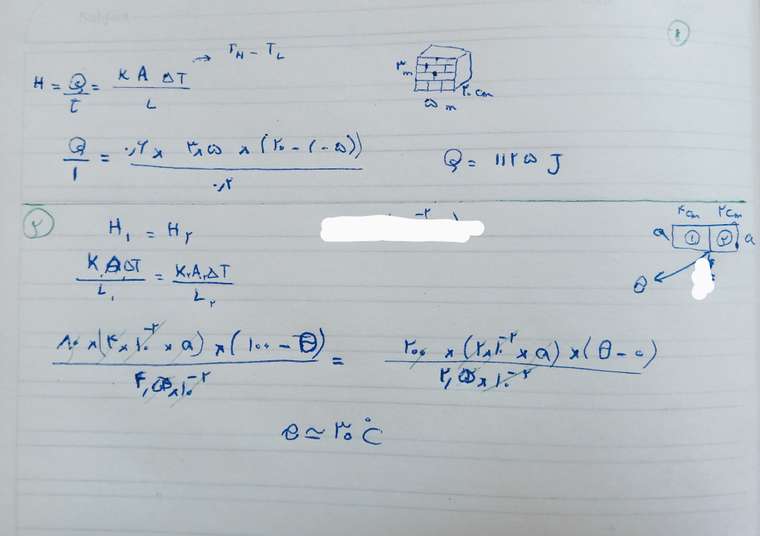 ۱
H = Q/t = K A ΔT / L → T_H − T_L
۳ m
۲۰ cm
۵ m
Q/۱ = ۰,۶ × ۳×۵ × (۲۰ − (−۵)) / ۰,۲
Q = ۱۱۲۵ J
۲
H۱ = H۲
۴cm ۲cm
a ۱ ۲ a
θ
K۱A۱ΔT / L۱ = K۲A۲ΔT / L۲
۸۰ × (۴×۱۰^-۲ × a) × (۱۰۰ − θ) / ۴ ×۱۰^-۲ = ۲۰۰ × (۲×۱۰^-۲ × a) × (θ − ۰) / ۲ ×۱۰^-۲
θ ≃ ۳۰ °C